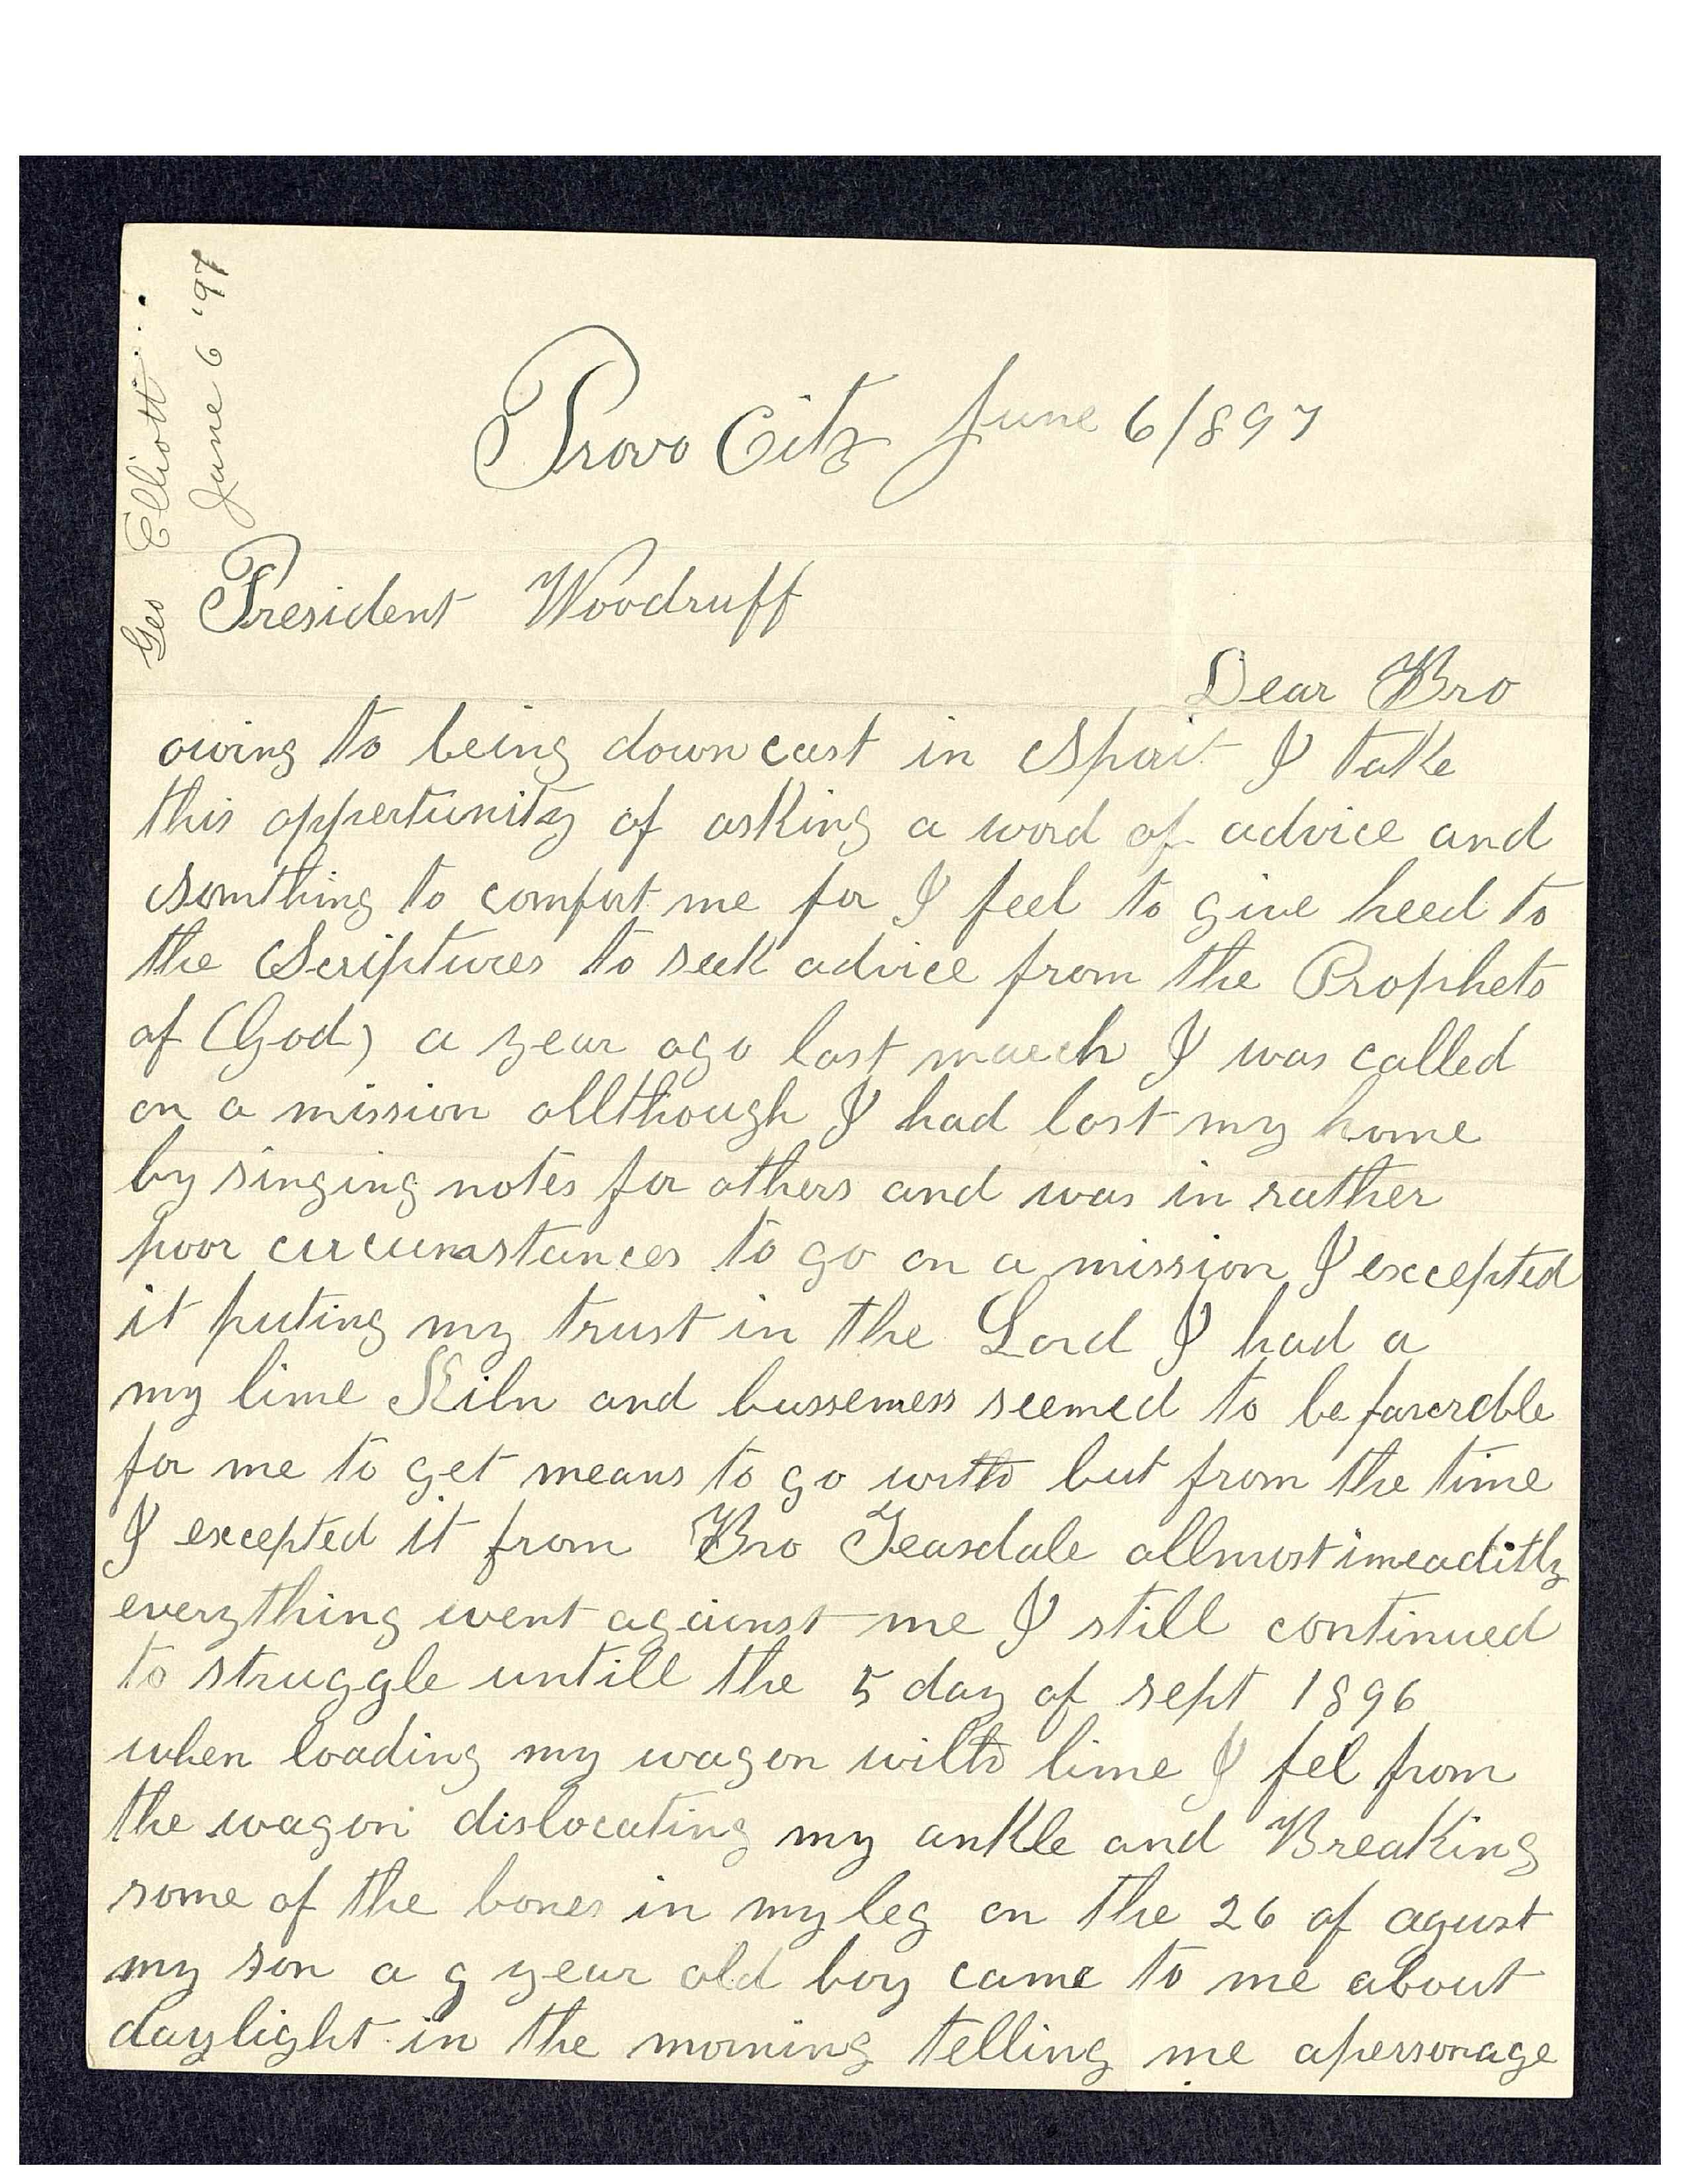 Geo Elliott
June 6 '97
Provo City June 6/897
President Woodruff
Dear Bro
owing to being down cast in Spirit I take
this oppertunity of asking a word of advice and
somthing to comfort me for I feel to give heed to
the Scriptures to seek advice from the Prophets
of (God) a year ago last march I was called
on a mission allthough I had lost my home
by singing notes for others and was in rather
poor circumstances to go on a mission I excepted
it puting my trust in the Lord I had a
my lime Kiln and bussemess seemed to be faverable
for me to get means to go with but from the time
I excepted it from Bro Teasdale allmost imeaditly
everything went against me I still continued
to struggle untill the 5 day of sept 1896
when loading my wagon with lime I fel from
the wagon dislocating my ankle and Breaking
some of the bones in my leg on the 26 of agust
my son a 9 year old boy came to me about
daylight in the morning telling me apersonage